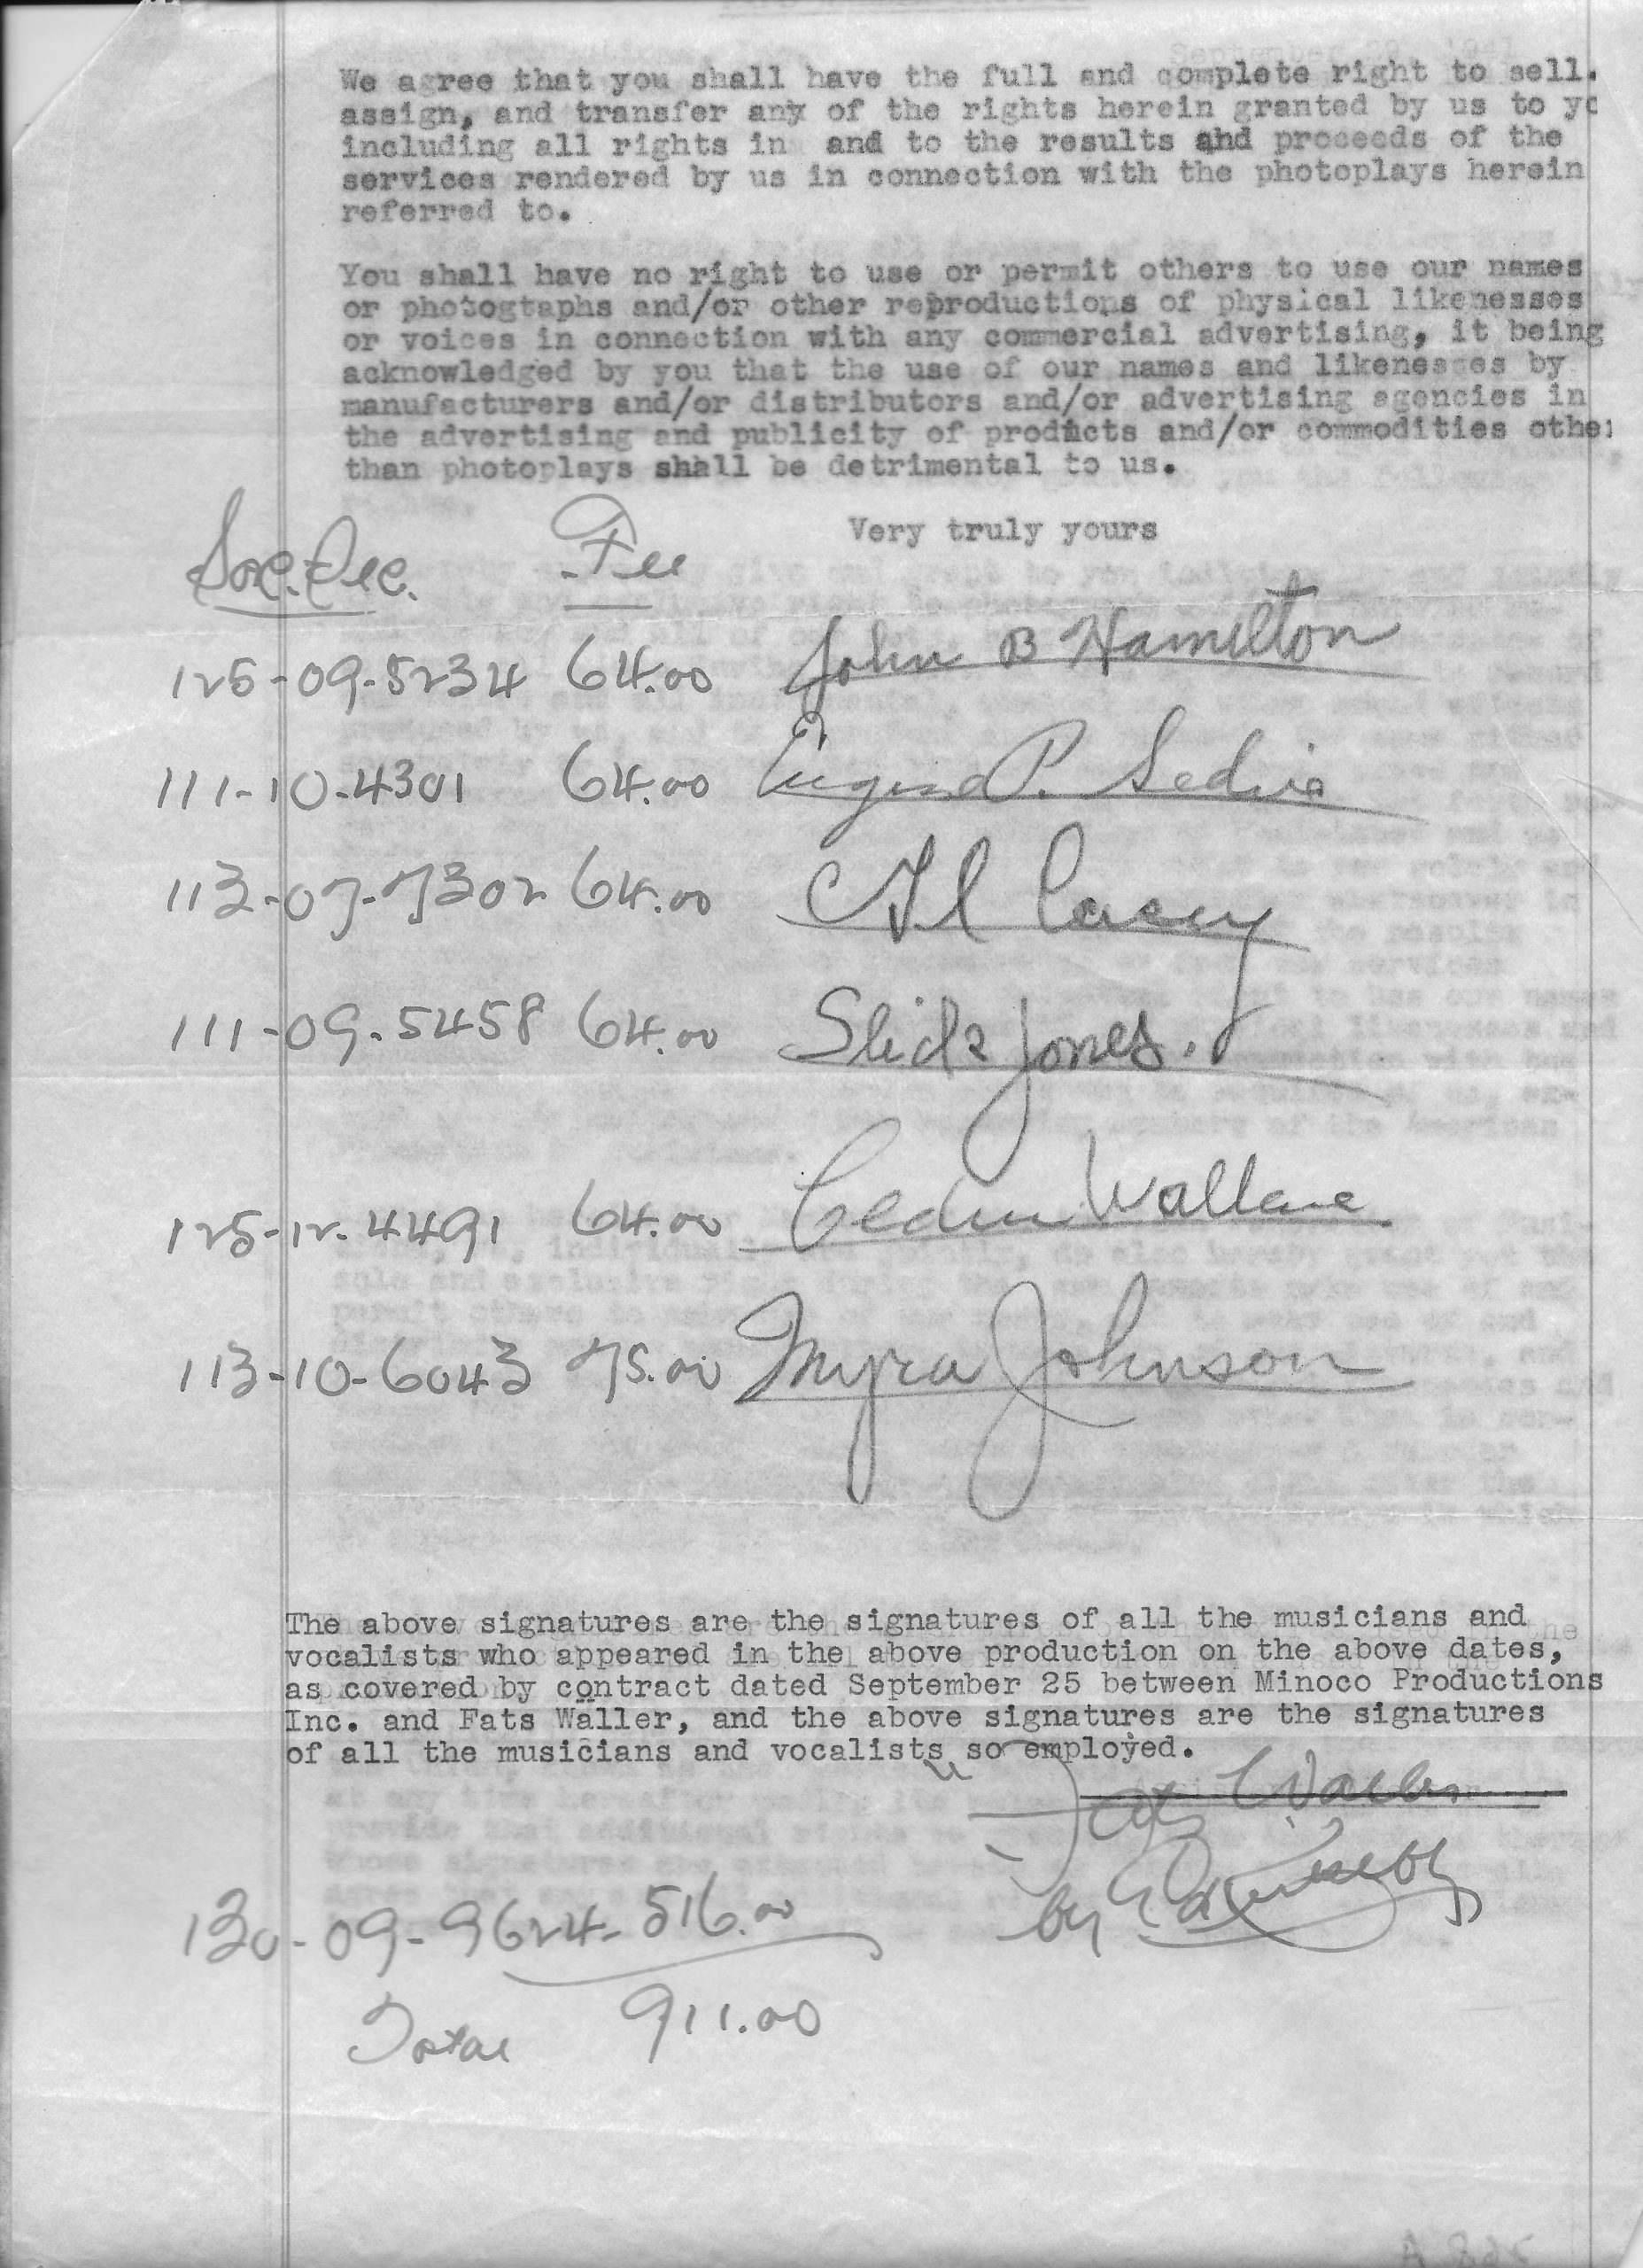 We agree that you shall have the full and complete right to sell.
assign, and transfer any of the rights herein granted by us to yo
including all rights in and to the results and proceeds of the
services rendered by us in connection with the photoplays herein
referred to.
You shall have no right to use or permit others to use our names
or photogtaphs and/or other reproductions of physical likenesses
or voices in connection with any commercial advertising, it being
acknowledged by you that the use of our names and likenesses by
manufacturers and/or distributors and/or advertising agencies in
the advertising and publicity of products and/or commodities other
than photoplays shall be detrimental to us.
Very truly yours
Soc. Sec. Fee
125-09-5234 64.00 John B Hamilton
111-10-4301 64.00 Eugene P. Sedric
113-07-7302 64.00 Al Casey
111-09-5458 64.00 Slick Jones.
125-12-4491 64.00 Cedric Wallace
113-10-6043 75.00 Myra Johnson
The above signatures are the signatures of all the musicians and
vocalists who appeared in the above production on the above dates,
as covered by contract dated September 25 between Minoco Productions
Inc. and Fats Waller, and the above signatures are the signatures
of all the musicians and vocalists so employed.
Fats Waller
by
130-09-9624- 516.00
Total 911.00